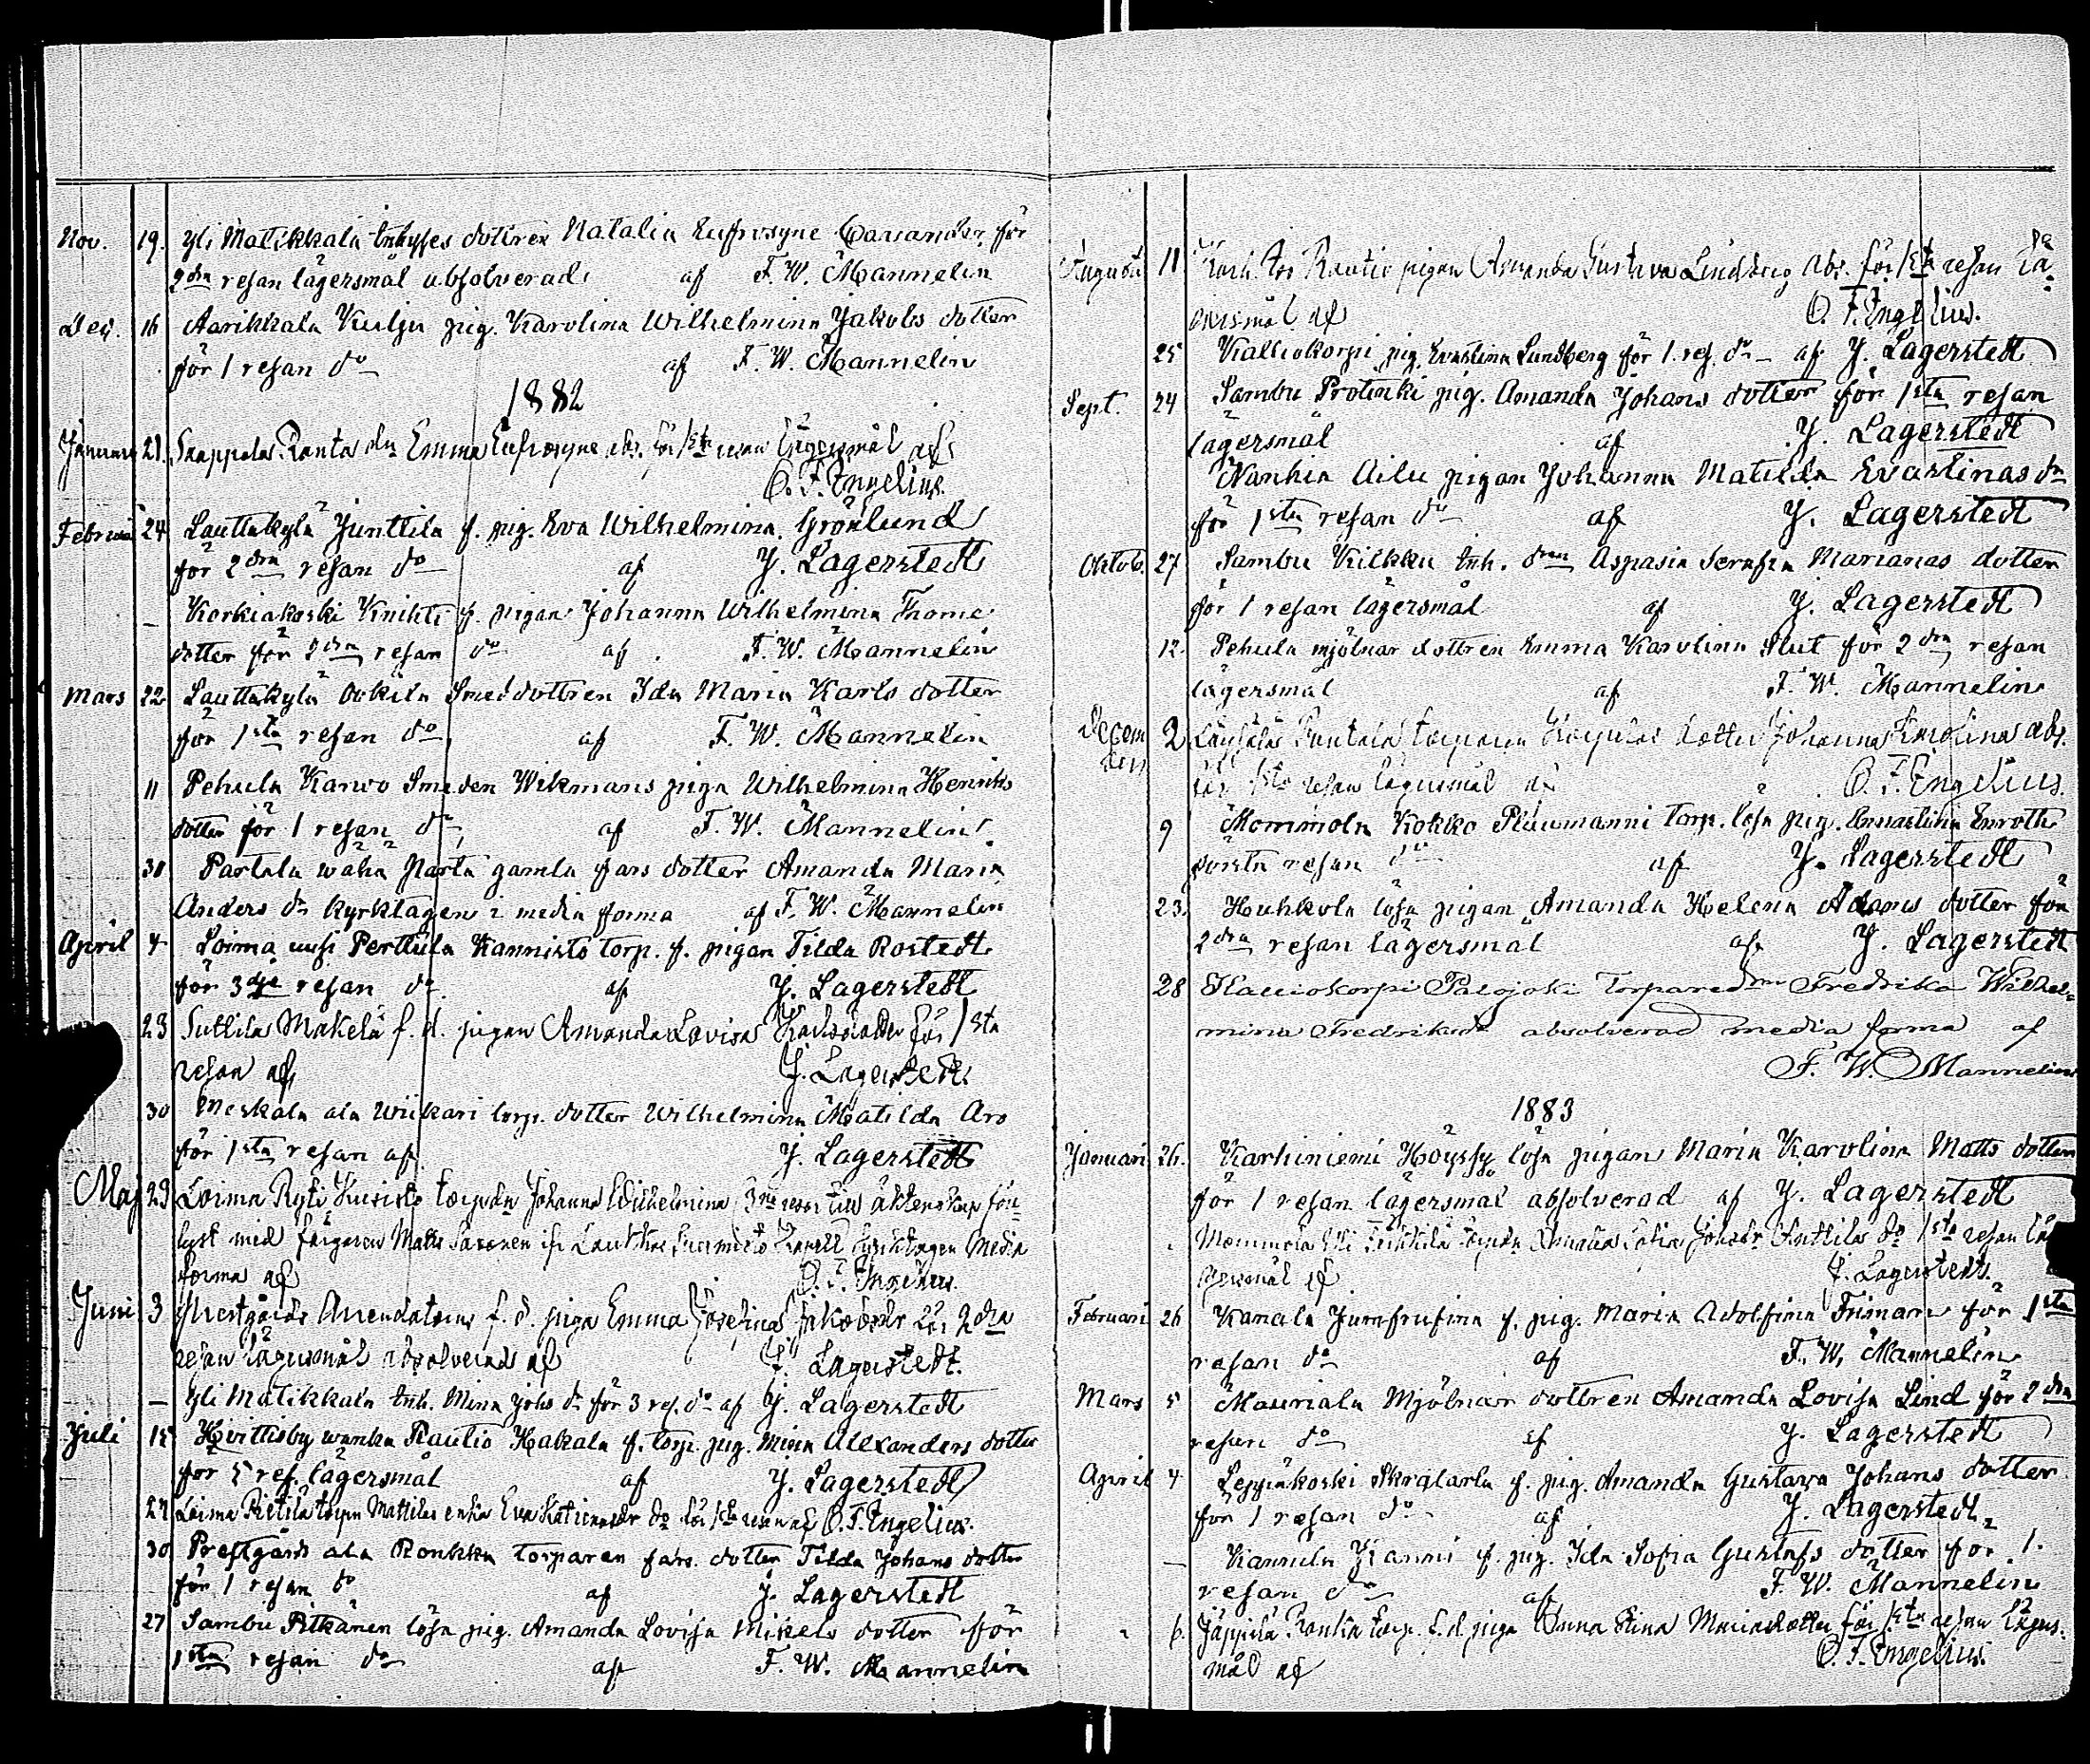 Nov. 19. Yli Mattikkala inhyses dottren Natalia Eufrosyne Casander för
2dra resan lägersmål absolverad af F. W. Mannelin
Dec. 16 Aarikkala Kulju pig. Karolina Wilhelmina Jakobs dotter
för 1 resan do af F. W. Mannelin
1882
Januari 21. Saappala Ranta dn Emma Eufrosyne abs. för 1sta resan lägersmål af
O. F. Engelius.
Februari 24 Lauttakylä Junttila f. pig. Eva Wilhelmina Grönlund
för 2dra resan do af J. Lagerstedt
— Korkiakoski Knihti f. pigan Johanna Wilhelmina Thome
dotter för 2dra resan do af F. W. Mannelin
Mars 22 Lauttakylä Smeddottren Ida Maria Karls dotter
för 1sta resan do af F. W. Mannelin
11 Pehula Karwo Smeden Wikmans piga Wilhelmina Henriks
dotter för 1 resan do af F. W. Mannelin
30 Partala waha Narta gamla fars dotter Amanda Maria
Anders dr kyrktagen i media forma af F. W. Mannelin
April 4 Loima uusi Perttula Kannisto torp. f. pigan Tilda Rostedt
för 3dje resan do af J. Lagerstedt
23 Suttila Mäkelä f. d. pigan Amanda Lovisa Karlsdotter för 1sta
resan af J. Lagerstedt
30 Meskala ala Wiikari torp. dotter Wilhelmina Matilda Aro
för 1sta resan af J. Lagerstedt
Maj 29 Loima Ryti Kuisisto Johanna Wilhelmina äktenskap
lyst med färgaren Matts kyrktagen media
forma af O. F. Engelius.
Juni 3 Prestgårds Arendatorns f. d. piga Emma Josefina Jakobsdr 2dra
resan lägersmål absolverad af J. Lagerstedt.
— Yli Mattikkala inh. Mina Johs dr för 3 res. do af J. Lagerstedt
Juli 15 Hvittisby wanha Rautio Hakala f. torp. pig. Maria Alexanders dotter
för 5 res. lägersmål af J. Lagerstedt
27 Loima Pietilä torpn Mattilas enka Eva do för 1sta resan af O. F. Engelius.
30 Prestgårds ala Ronkka torparen fars. dotter Tilda Johans dotter
för 1 resan do af J. Lagerstedt
27 Sambu Pitkänen lösa pig. Amanda Lovisa Mikels dotter för
1sta resan do af F. W. Mannelin
Augusti 11 Rautio pigan Amanda Gustava Lindberg abs. för 1sta resan lä-
gersmål af O. F. Engelius.
25 Kalliokorpi pig. Evastina Lundberg för 1. res. do af J. Lagerstedt
Sept. 24 Sambu Protinki pig. Amanda Johans dotter för 1sta resan
lägersmål af J. Lagerstedt
Nanhia Ailu pigan Johanna Matilda Evastinas dr
för 1sta resan do af J. Lagerstedt
Oktob. 27 Sambu Kilkku inh. dren Aspasia Serafia Marianas dotter
för 1 resan lägersmål af J. Lagerstedt
12. Pehula mjölnar dottren Emma Karolina Slut för 2dra resan
lägersmål af F. W. Mannelin
Decem
ber 2 Puntala torparen dotter Johanna Karolina abs.
för 1sta resan lägersmål af O. F. Engelius.
9 Mommola Kokko Pluumanni torp. lösa pig. Annastina Enroth
första resan do af J. Lagerstedt
23. Huhkola lösa pigan Amanda Helena Adams dotter för
2dra resan lägersmål af J. Lagerstedt
28 Kalliokorpi Palojoki torparedrn Fredrika Wilhel-
mina Fredriksdr absolverad media forma af
F. W. Mannelin
1883
Januari 26. Karhiniemi Höyssy lösa pigan Maria Karolina Matts dotter
för 1 resan lägersmål absolverad af J. Lagerstedt
" Mommola Yli Anttila do 1sta resan lä-
gersmål af J. Lagerstedt.
Februari 26 Kanala f. pig. Maria Adolfina Friman för 1sta
resan do af F. W. Mannelin
Mars 5 Mauriala Mjölnar dottren Amanda Lovisa Lind för 2dra
resan do af J. Lagerstedt
April 4 Leppäkoski Skratarla f. pig. Amanda Gustava Johans dotter
för 1 resan do af J. Lagerstedt
— Kannula Kanni f. pig. Ida Sofia Gustafs dotter för 1.
resan do af F. W. Mannelin
" 6. Jäppilä Rantia torp. f. d. piga Anna Stina Mariadotter för 1sta resan lägers-
mål af O. F. Engelius.